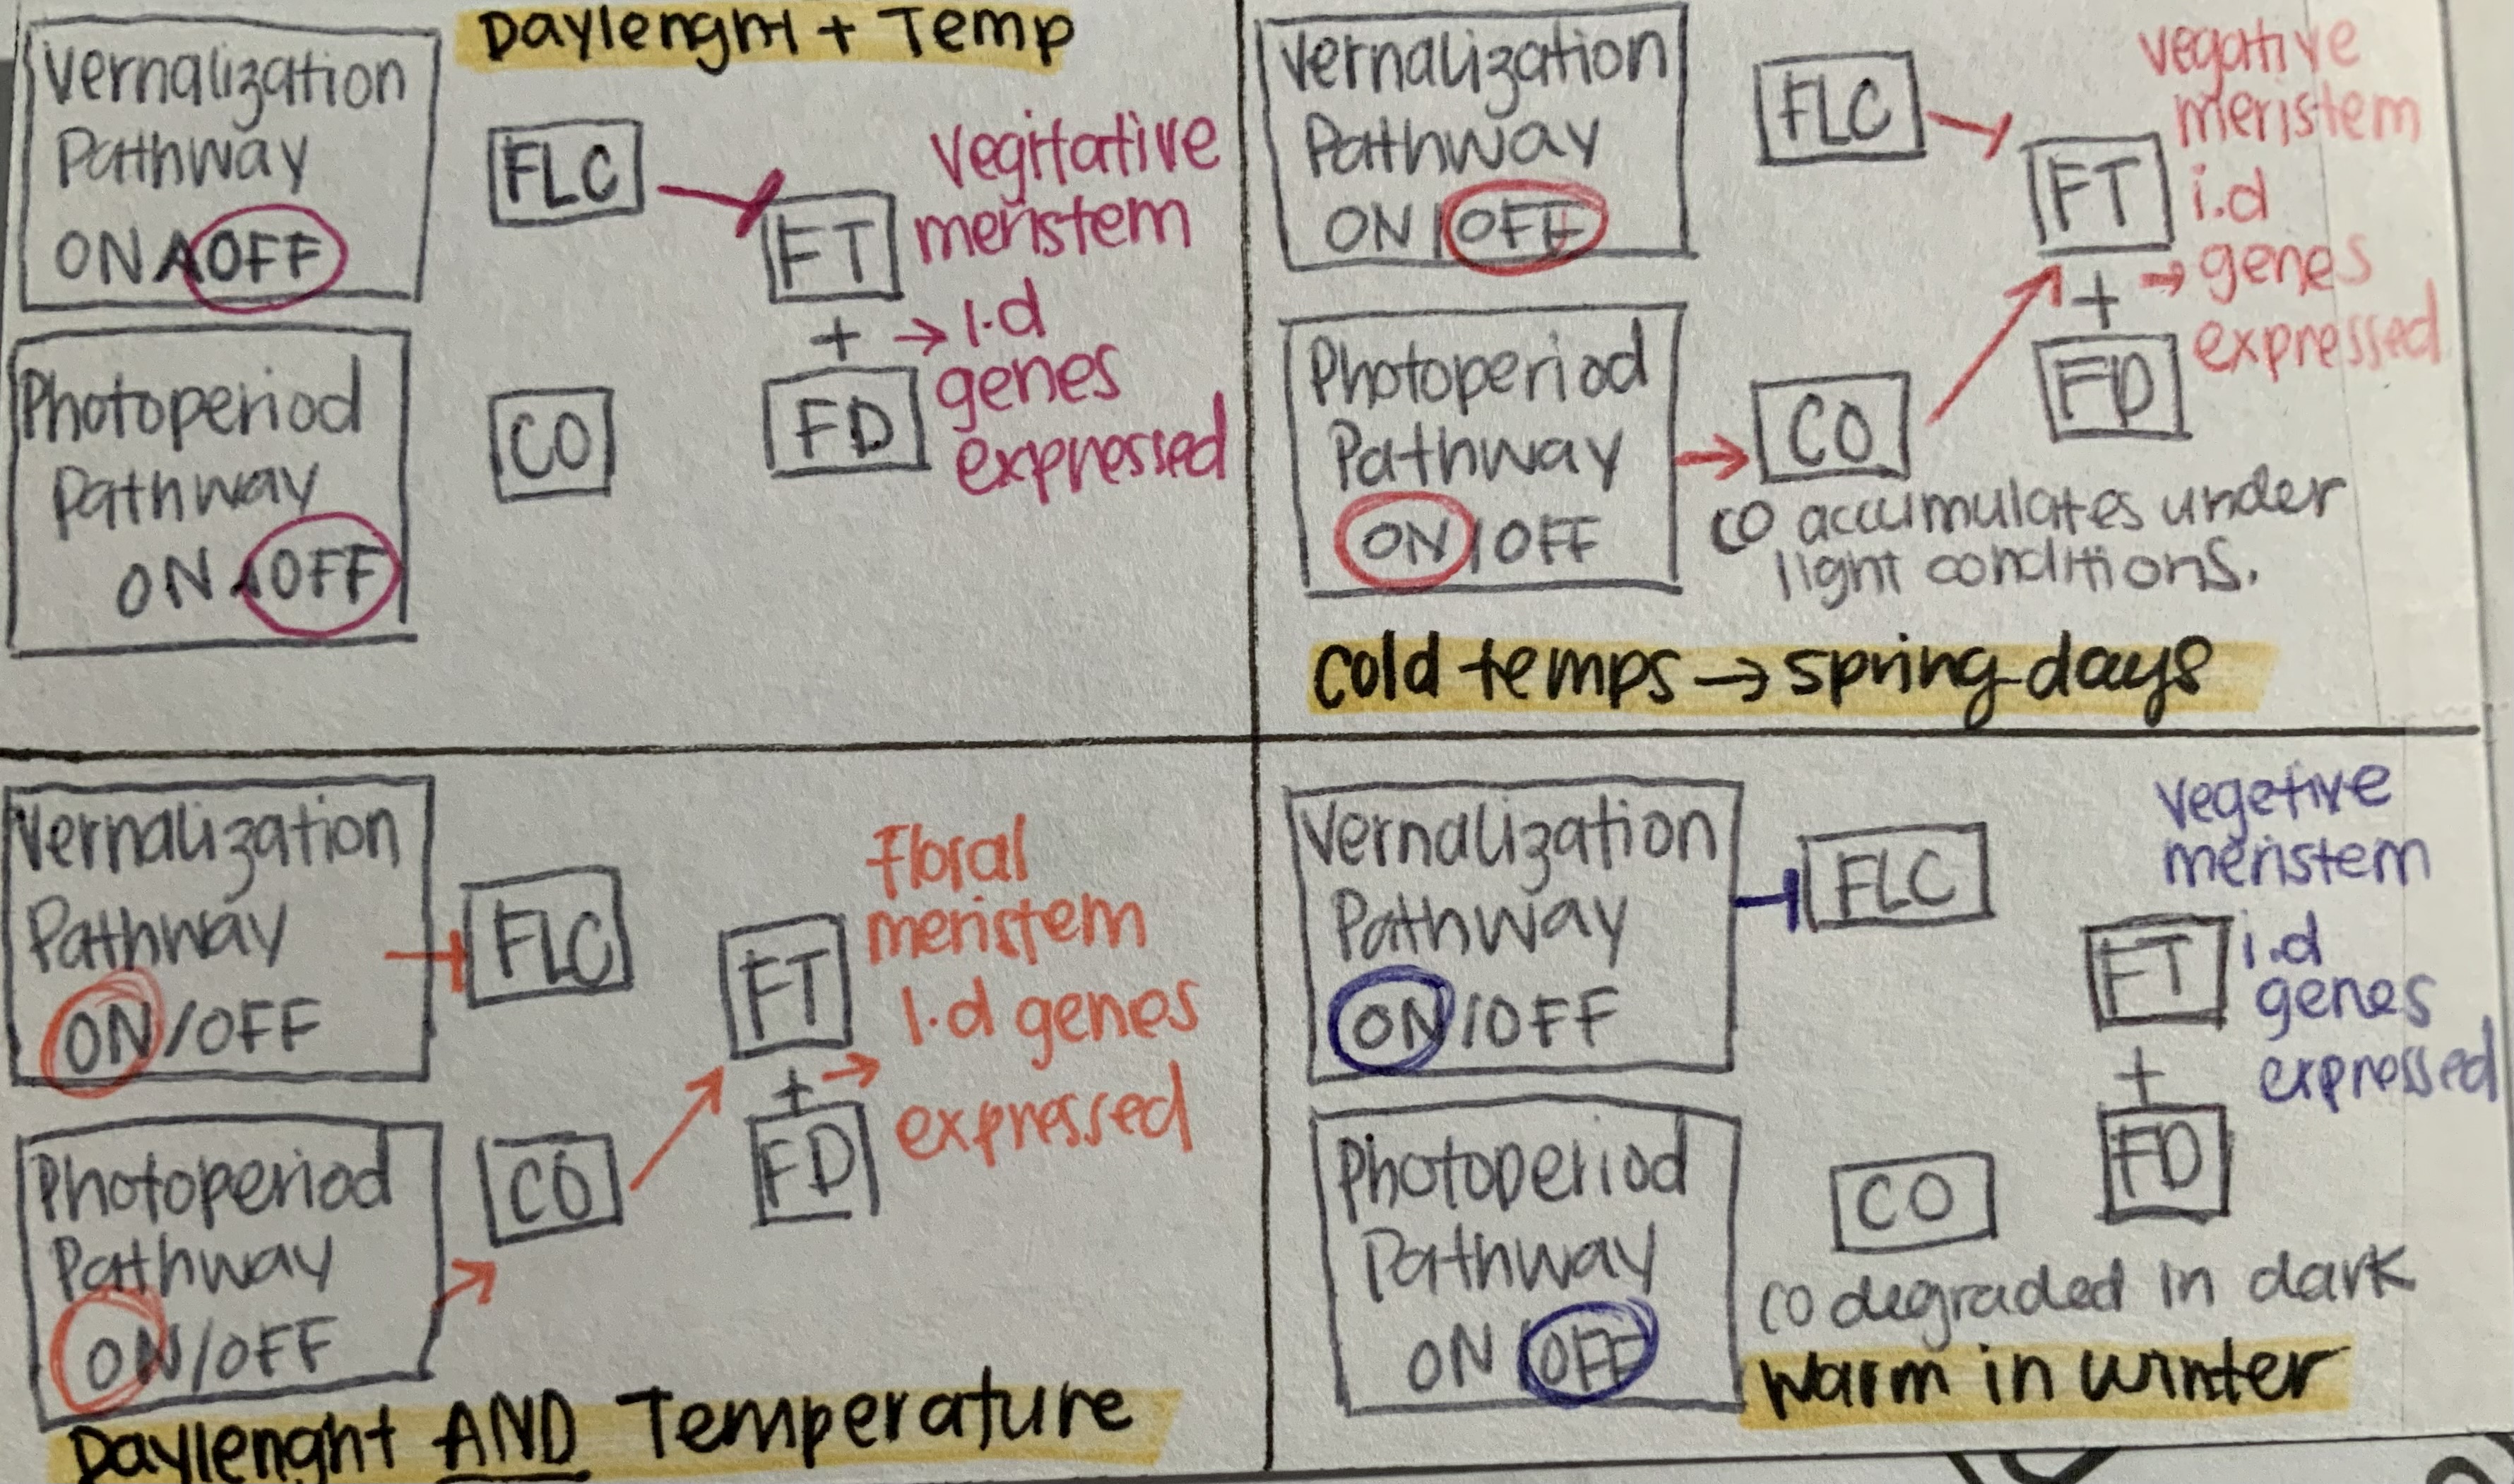 Daylenght + Temp
Vernalization
Pathway
ON/OFF
FLC
FT
+
FD
Vegitative
meristem
→ I.d
genes
expressed
Photoperiod
Pathway
ON/OFF
CO
Vernalization
Pathway
ON/OFF
FLC
FT
+
FD
vegative
meristem
i.d
→ genes
expressed
Photoperiod
Pathway
ON/OFF
CO
CO accumulates under
light conditions.
cold temps → spring days
Vernalization
Pathway
ON/OFF
FLC
FT
+
FD
Floral
meristem
I.d genes
→
expressed
Photoperiod
Pathway
ON/OFF
CO
Daylenght AND Temperature
Vernalization
Pathway
ON/OFF
FLC
FT
+
FD
vegetive
meristem
i.d
genes
expressed
Photoperiod
Pathway
ON/OFF
CO
CO degraded in dark
Warm in winter